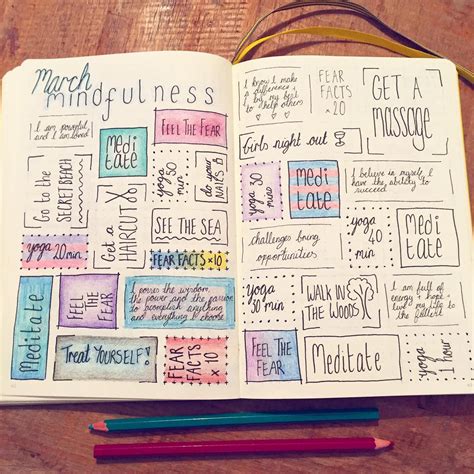 March
mindfulness
I am powerful
and I am loved
Medi
tate
FEEL THE FEAR
Go to the
SECRET BEACH
Get a
HAIRCUT
yoga 30
min
do your
NAILS
SEE THE SEA
yoga 20 min
FEAR FACTS ×10
Meditate
FEEL
THE
FEAR
I posess the wisdom,
the power and the passion
to accomplish anything
and everything I choose
Treat YOURSELF!
FEAR
FACTS
×10
I know I make
a difference,
I try my best
to help others
FEAR
FACTS
×20
GET A
MASSAGE
Girls night out
yoga 30
min
Medi
tate
I believe in myself, I
have the ability to
succeed
challenges bring
opportunities
yoga
40
min
Medi
tate
yoga
30 min
WALK IN
THE WOODS
I am full of
energy + hope -
live my life to
the fullest
FEEL
THE FEAR
Meditate
yoga
1 hour